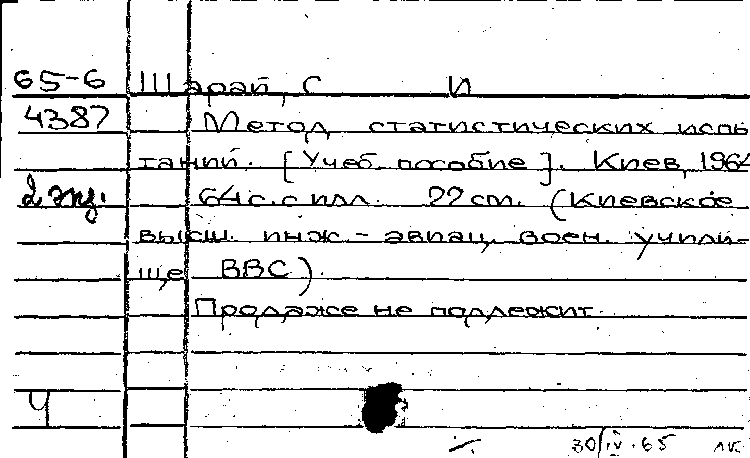 65-6 Шарай, С И
4387 Метод статистических испы
таний. [Учеб. пособие]. Киев, 1964
2 экз. 64 с. с илл. 22 см. (Киевское
высш. инж.-авиац. воен. учили-
ще ВВС).
Продаже не подлежит.
Ч
30/IV.65 лк